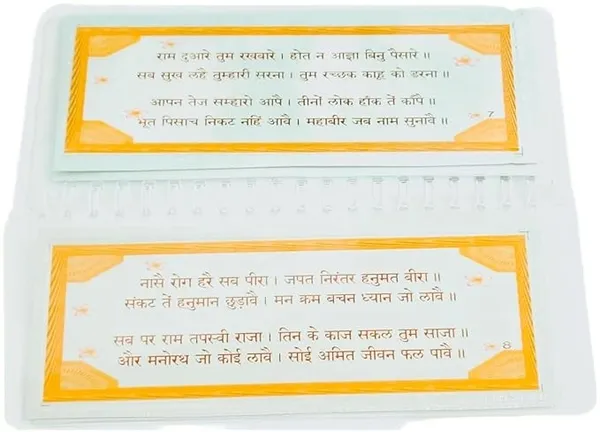 राम दुआरे तुम रखवारे । होत न आज्ञा बिनु पैसारे ॥
सब सुख लहै तुम्हारी सरना । तुम रच्छक काहू को डरना ॥
आपन तेज सम्हारो आपै । तीनों लोक हाँक तें काँपै ॥
भूत पिसाच निकट नहिं आवै । महाबीर जब नाम सुनावै ॥
7
नासै रोग हरै सब पीरा । जपत निरंतर हनुमत बीरा ॥
संकट तें हनुमान छुड़ावै । मन क्रम बचन ध्यान जो लावै ॥
सब पर राम तपस्वी राजा । तिन के काज सकल तुम साजा ॥
और मनोरथ जो कोई लावै । सोई अमित जीवन फल पावै ॥
8